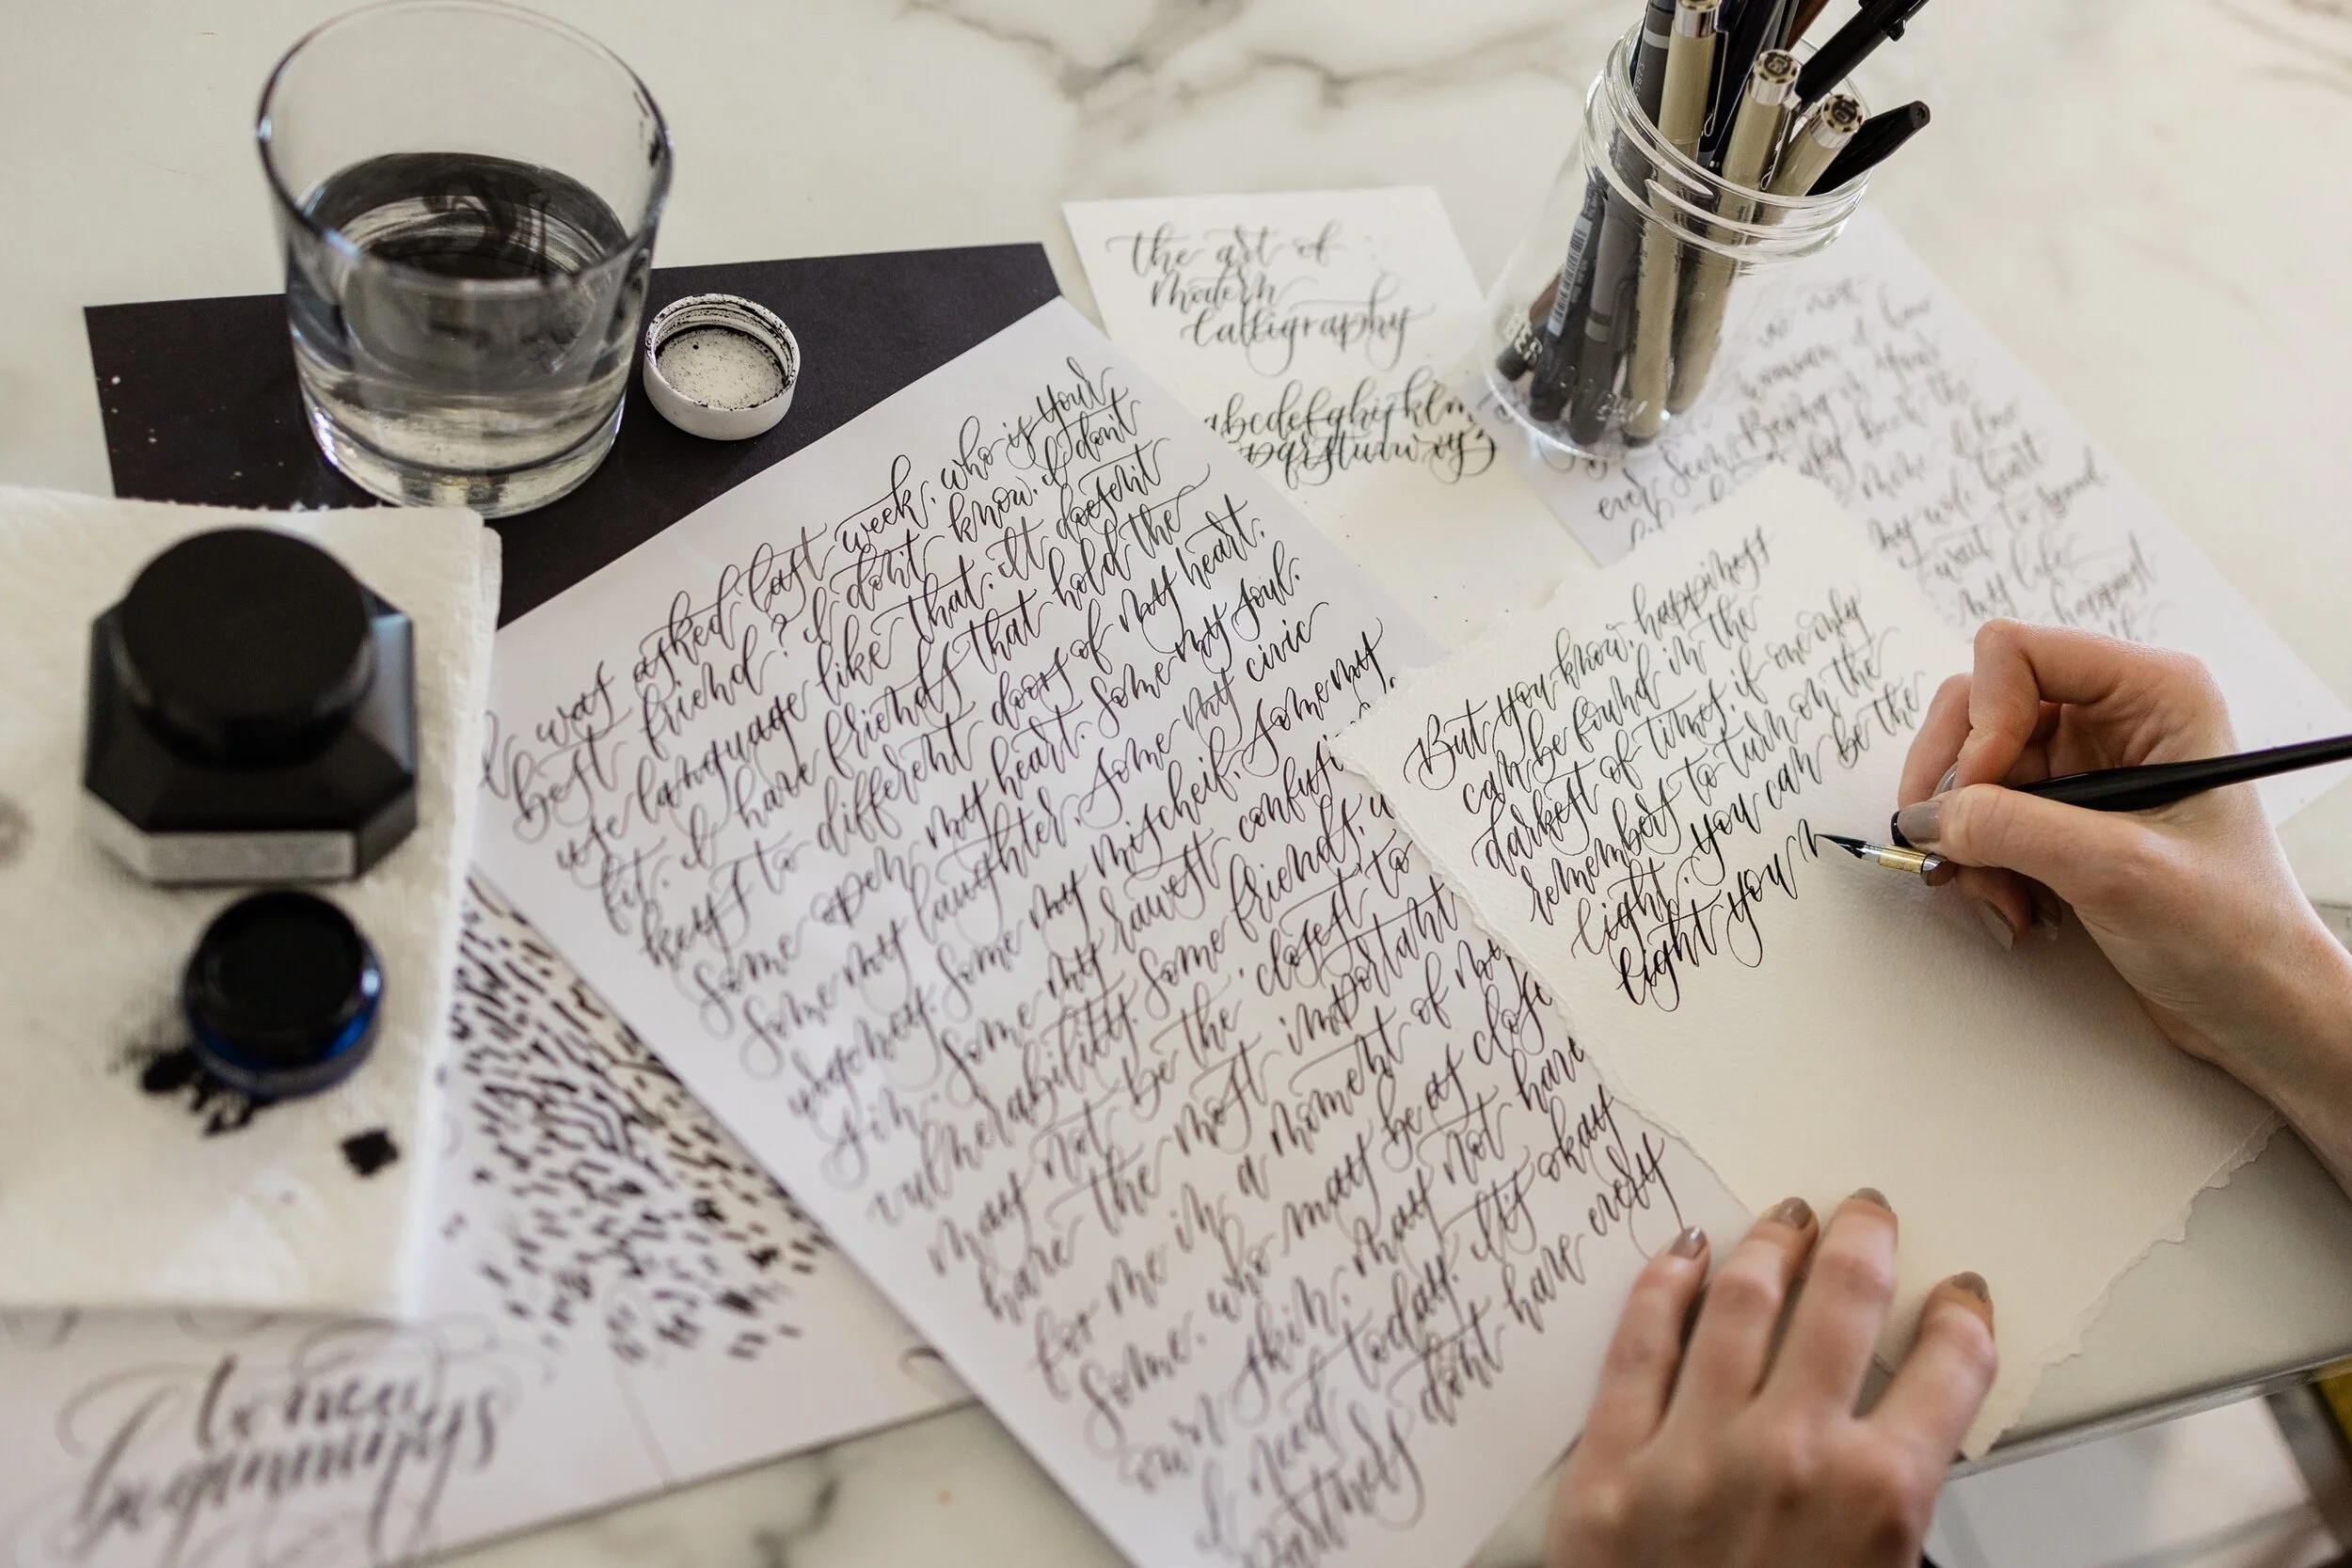 the art of
Modern
Calligraphy
abcdefghijklm
pqrstuvwxyz
I was asked last week, who is your
best friend? I don't know. I don't
use language like that. It doesn't
fit. I have friends that hold the
keys to different doors of my heart.
Some open my heart. Some my soul.
Some my laughter. Some my civic
Some my mischeif. Some my
sin. Some my rawest
vulnerability. Some friends,
may not be the closest to
have the most important
for me in a moment of
Some, who may be as close
own skin, may not have
I need today. It's okay
partners don't have every
But you know, happiness
can be found in the
darkest of times, if one only
remembers to turn on the
light. You can be the
light you
ever seen
my wife
want to spend
my life
to new
beginnings